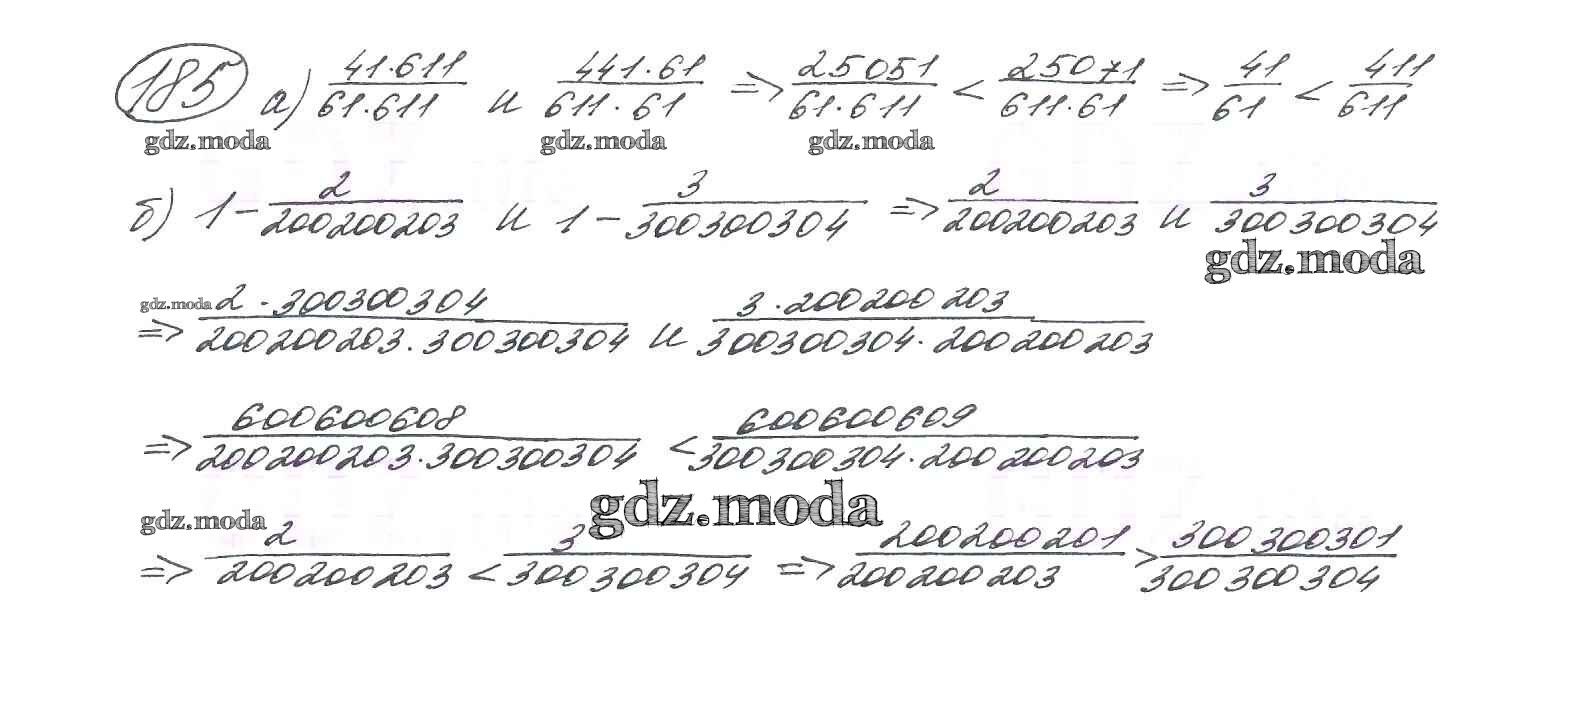 185 а) 41·611/61·611 и 441·61/611·61 => 25051/61·611 < 25071/611·61 => 41/61 < 411/611
gdz.moda gdz.moda gdz.moda
б) 1 - 2/200200203 и 1 - 3/300300304 => 2/200200203 и 3/300300304
gdz.moda
gdz.moda
=> 2·300300304/200200203·300300304 и 3·200200203/300300304·200200203
=> 600600608/200200203·300300304 < 600600609/300300304·200200203
gdz.moda gdz.moda
=> 2/200200203 < 3/300300304 => 200200201/200200203 > 300300301/300300304